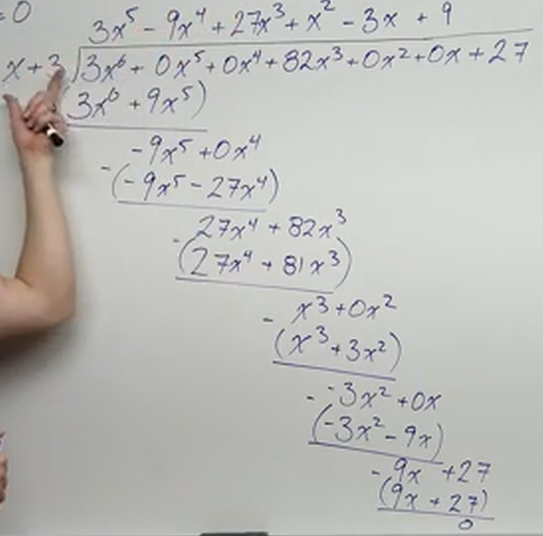 =0
3x⁵ - 9x⁴ + 27x³ + x² - 3x + 9
x+3 √3x⁶ + 0x⁵ + 0x⁴ + 82x³ + 0x² + 0x + 27
3x⁶ + 9x⁵)
-9x⁵ + 0x⁴
-(-9x⁵ - 27x⁴)
27x⁴ + 82x³
-(27x⁴ + 81x³)
x³ + 0x²
-(x³ + 3x²)
-3x² + 0x
-(-3x² - 9x)
9x + 27
-(9x + 27)
0